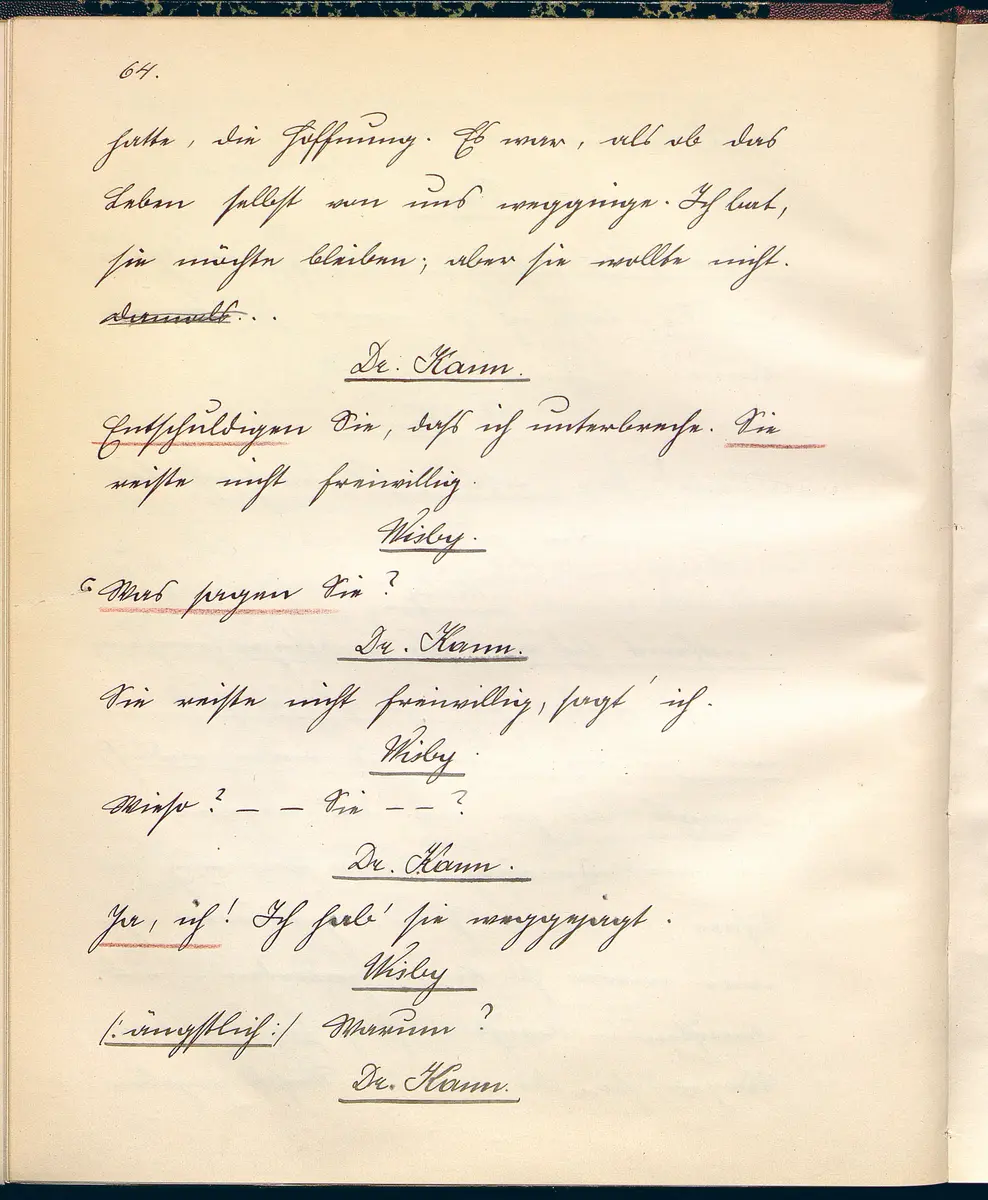 64.
hatte, die Hoffnung. Es war, als ob das
Leben selbst von uns wegginge. Ich bat,
sie möchte bleiben; aber sie wollte nicht.
damals...
Dr. Kann.
Entschuldigen Sie, dass ich unterbreche. Sie
reiste nicht freiwillig.
Wisby.
Was sagen Sie?
Dr. Kann.
Sie reiste nicht freiwillig, sagt' ich.
Wisby.
Wieso? — — Sie — —?
Dr. Kann.
Ja, ich! Ich hab' sie weggejagt.
Wisby
(: ängstlich :) Warum?
Dr. Kann.